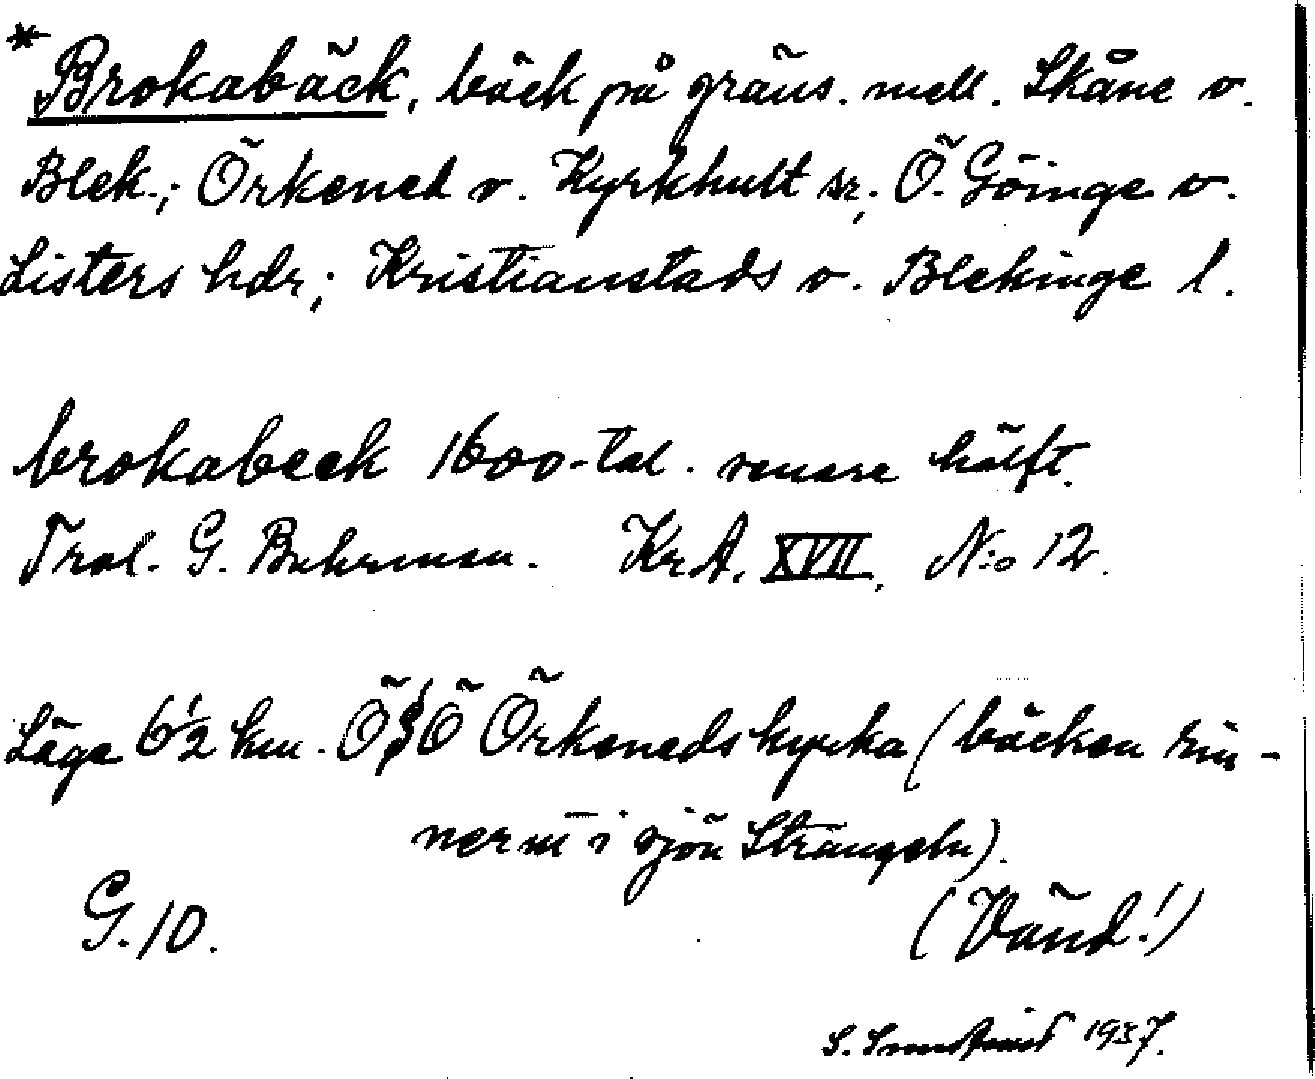 * Brokabäck, bäck på gräns. mell. Skåne o.
Blek.; Örkened o. Kyrkhult sr; Ö. Göinge o.
Listers hdr; Kristianstads o. Blekinge l.
brokabeck 1600-tal. senare hälft.
Trol. G. Buhrman. KrA. XVII, N:o 12.
Läge 6½ km. ÖSÖ Örkeneds kyrka (bäcken rin-
ner in i sjön Strängeln).
G. 10. (Vänd!)
S. 1937.